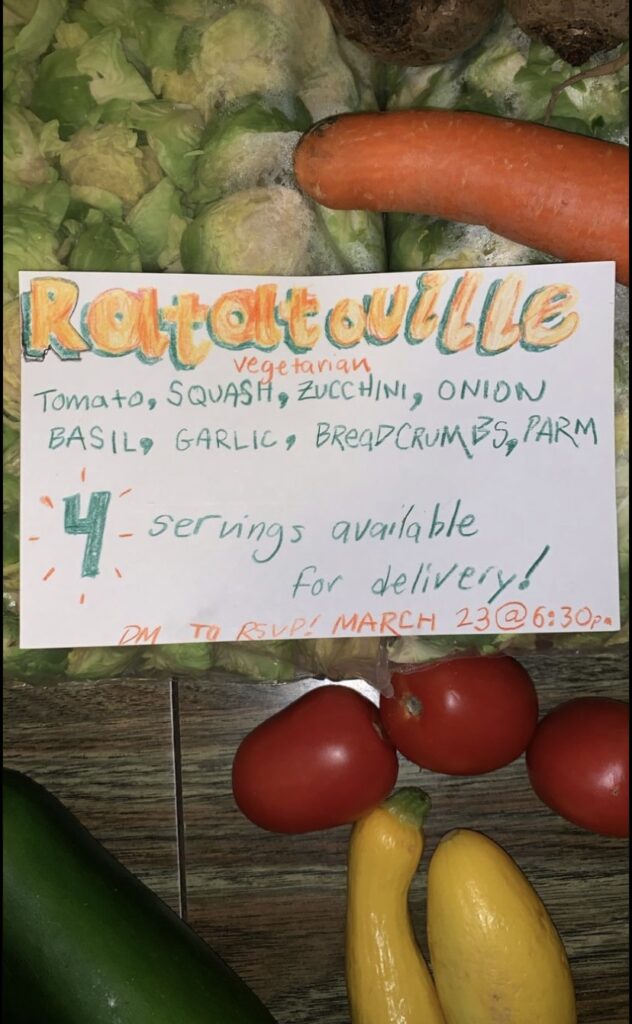 Ratatouille
vegetarian
Tomato, SQUASH, ZUCCHINI, ONION
BASIL, GARLIC, BREADCRUMBS, PARM
4 servings available
for delivery!
DM TO RSVP! MARCH 23@6:30p.